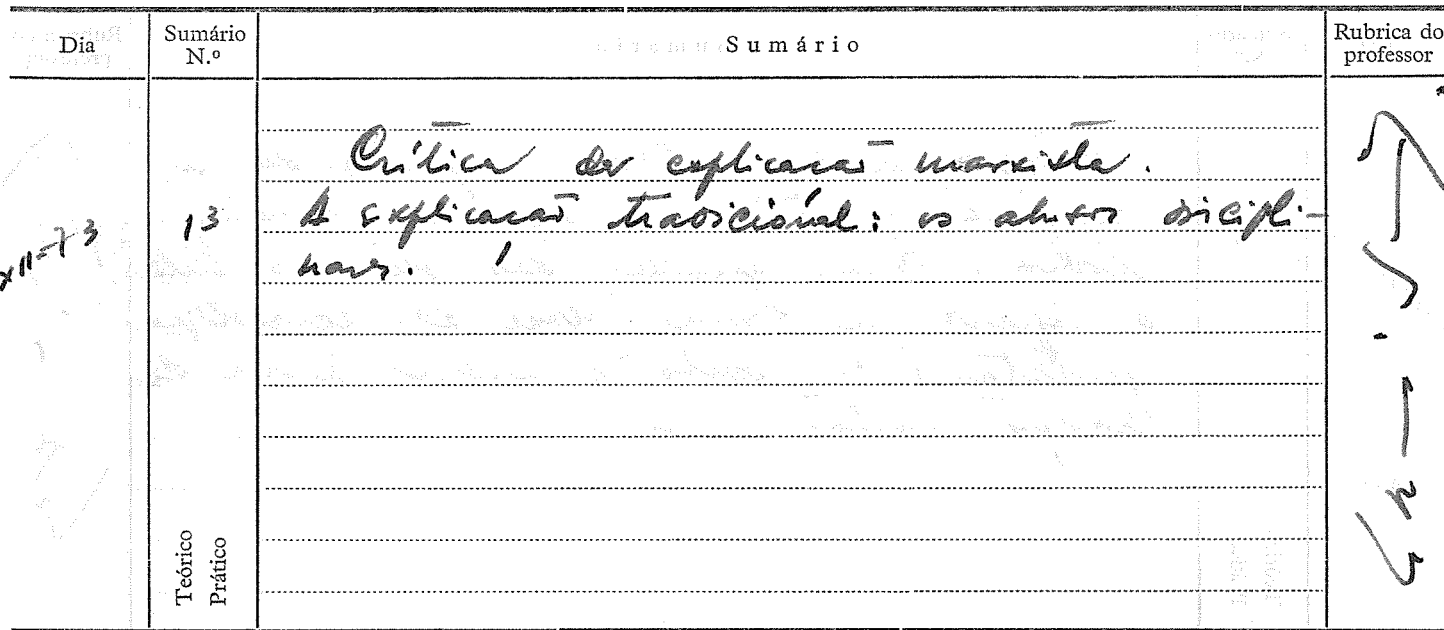 Dia Sumário N.º Sumário Rubrica do professor
XII-73 13
Crítica da explicação marxista.
A explicação tradicional: os abusos discipli-
nares.
Teórico
Prático